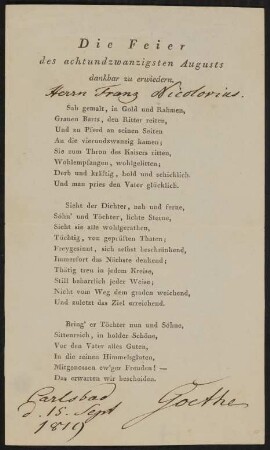 Die Feier
des achtundzwanzigsten Augusts
dankbar zu erwiedern.
Herrn Franz Nicolovius.
Sah gemalt, in Gold und Rahmen,
Grauen Barts, den Ritter reiten,
Und zu Pferd an seinen Seiten
An die vierundzwanzig kamen;
Sie zum Thron des Kaisers ritten,
Wohlempfangen, wohlgelitten;
Derb und kräftig, hold und schicklich.
Und man pries den Vater glücklich.
Sieht der Dichter, nah und ferne,
Söhn' und Töchter, lichte Sterne,
Sieht sie alle wohlgerathen,
Tüchtig, von geprüften Thaten;
Freygesinnt, sich selbst beschränkend,
Immerfort das Nächste denkend;
Thätig treu in jedem Kreise,
Still beharrlich jeder Weise;
Nicht vom Weg dem graden weichend,
Und zuletzt das Ziel erreichend.
Bring' er Töchter nun und Söhne,
Sittenreich, in holder Schöne,
Vor den Vater alles Guten,
In die reinen Himmelsgluten,
Mitgenossen ew'ger Freuden! —
Das erwarten wir bescheiden.
Carlsbad
d. 15. Sept
1819
Goethe